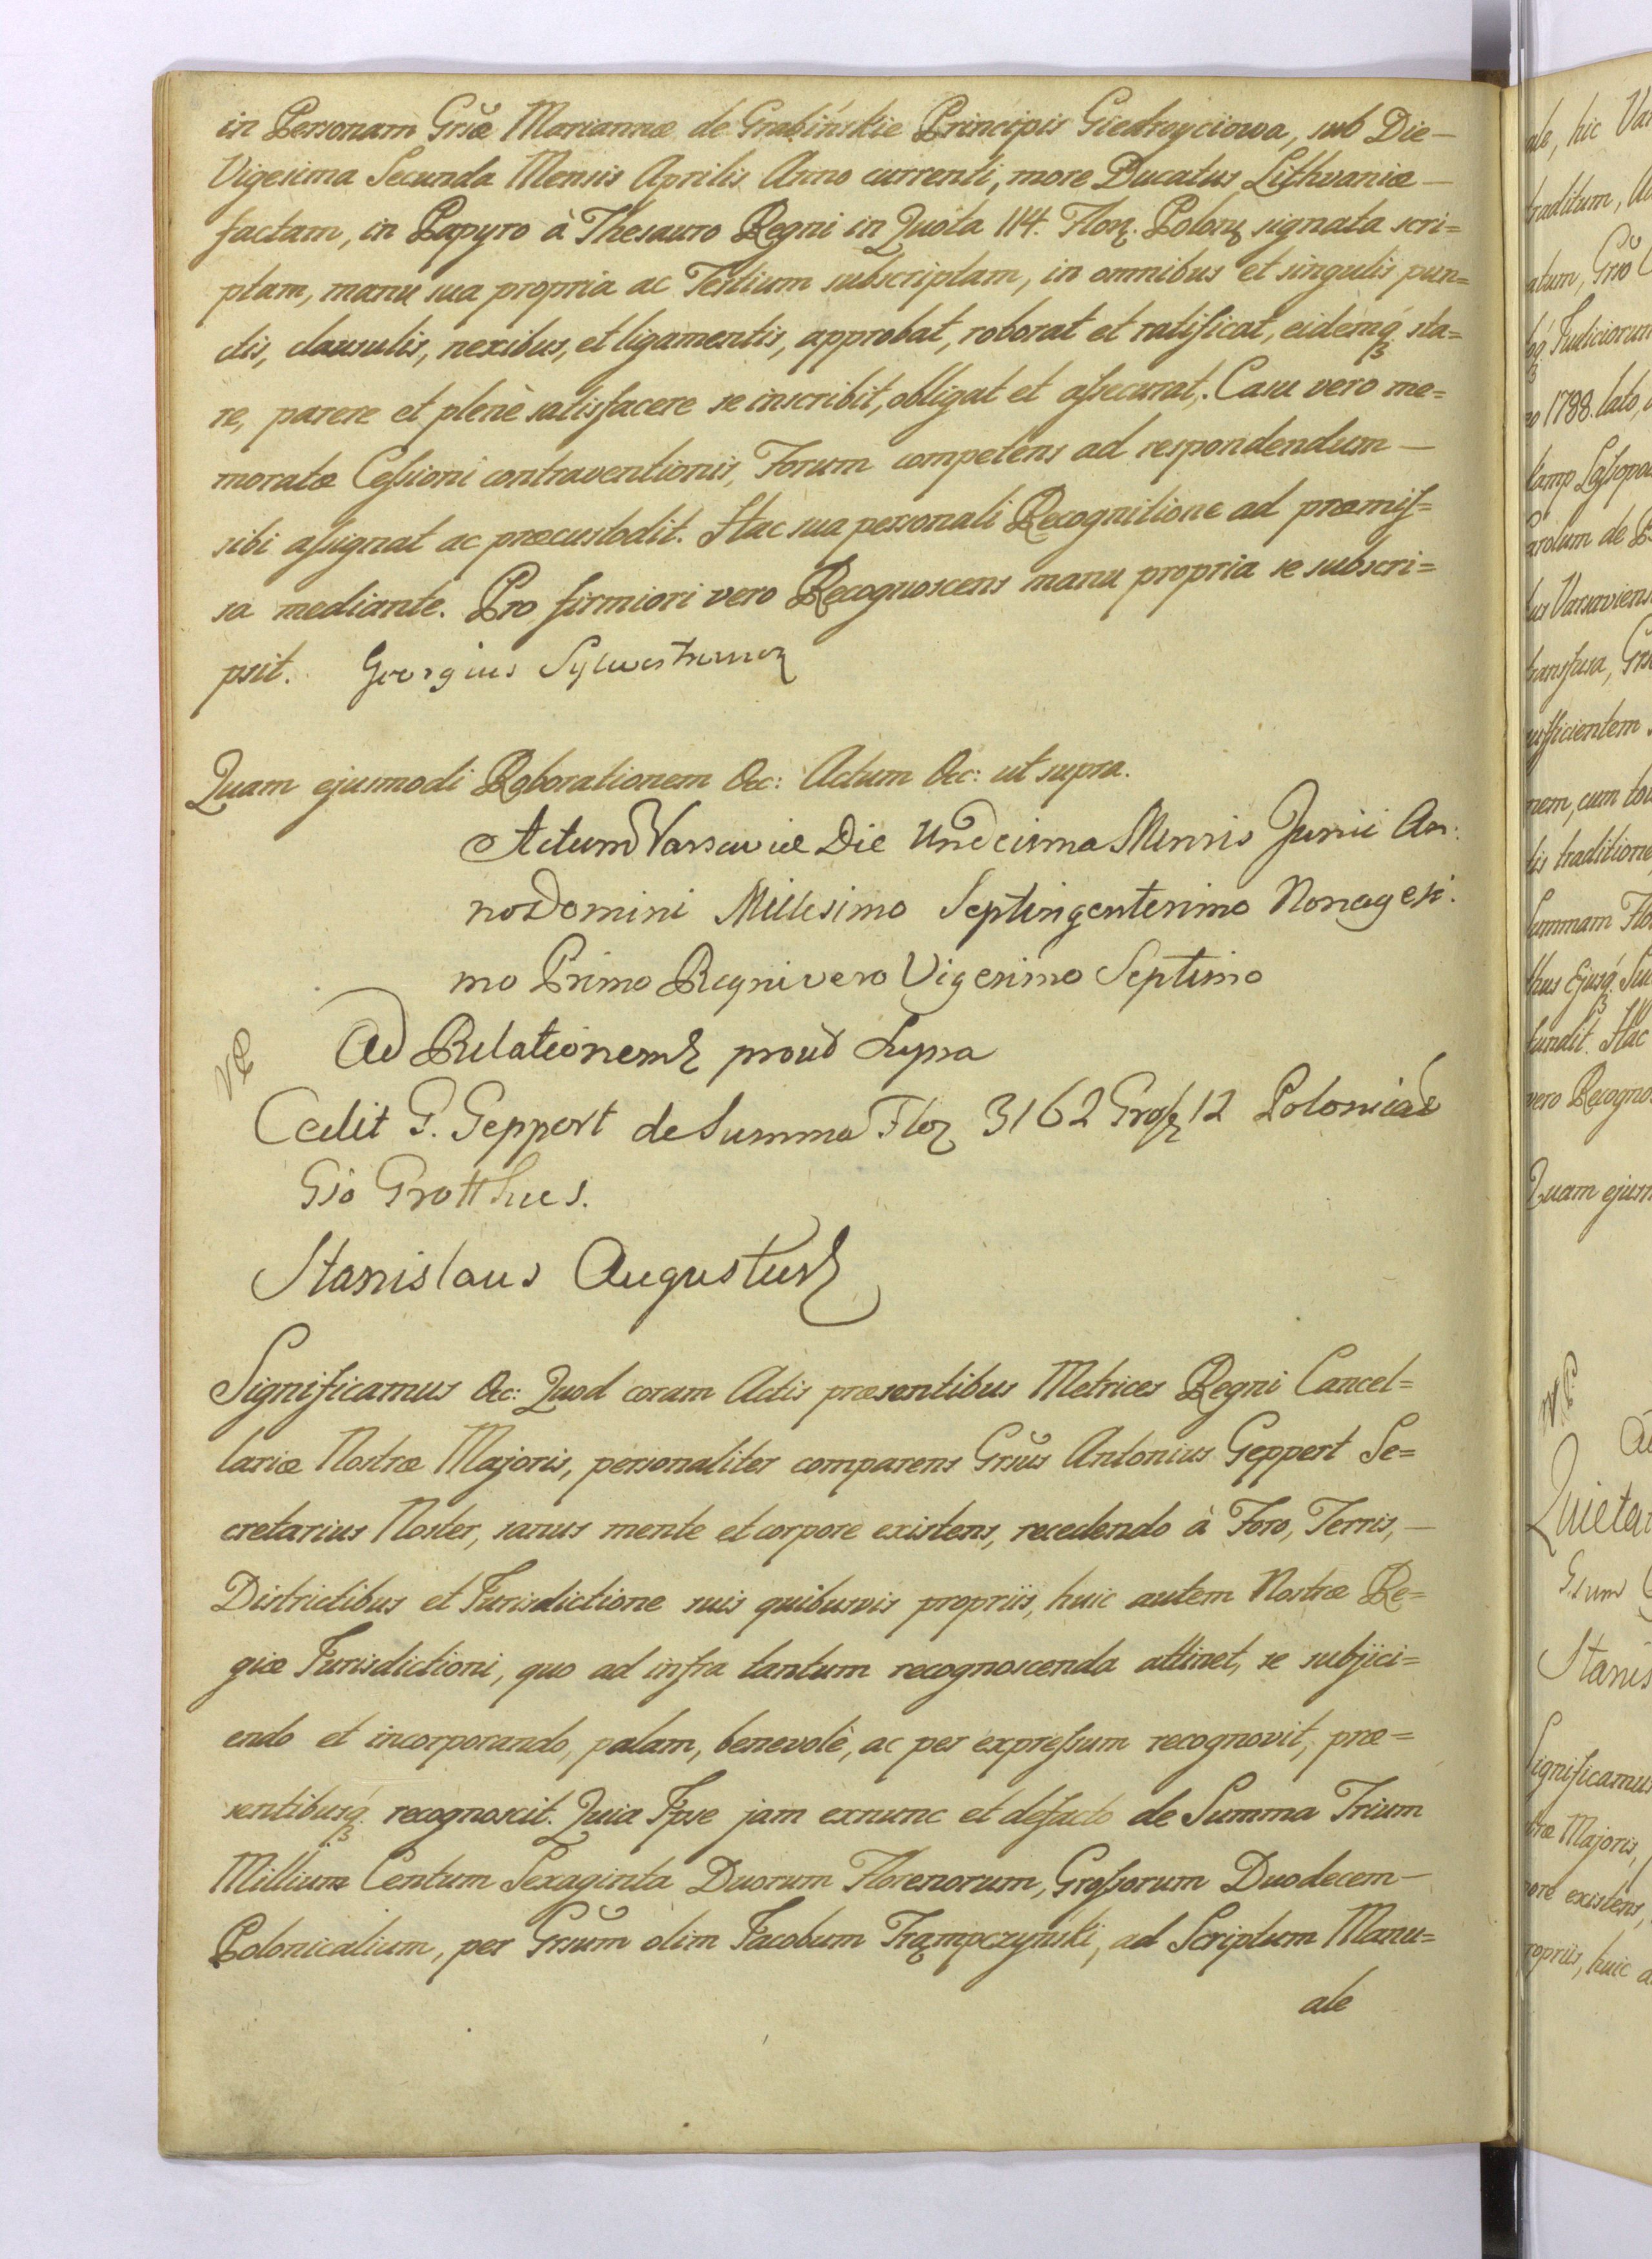 in Personam Grsæ Mariannæ de Grabińskie Principis Giedroyciowa, sub Die —
Vigesima Secunda Mensis Aprilis Anno currenti, more Ducatus Lithvaniæ —
factam, in Papyro à Thesauro Regni in Quota 114. Flor. Polon. signata scri=
ptam, manu sua propria ac Testium subscriptam, in omnibus et singulis pun=
ctis, clausulis, nexibus, et ligamentis, approbat, roborat et ratificat, eidemq́ʒ sta=
re, parere et plenè satisfacere se inscribit, obligat et aſsecurat,. Casu vero me=
moratæ Ceſsioni contraventionis, Forum competens ad respondendum —
sibi aſsignat ac præcustodit. Hac sua personali Recognitione ad præmiſ=
sa mediante. Pro firmiori vero Recognoscens manu propria se subscri=
psit. Georgius
Quam ejusmodi Roborationem &c: Actum &c: ut supra.
Actum Varsaviæ Die Undecima Mensis Junii An:
no Domini Millesimo Septingentesimo Nonagesi:
mo Primo Regni vero Vigesimo Septimo
Ad Relationem prout Supra
Cedit G. Geppert de Summa Flor 3162 Groſs 12 Polonical
Gso Grotthus.
Stanislaus Augustus
Significamus &c: Quod coram Actis præsentibus Metrices Regni Cancel=
lariæ Nostræ Majoris, personaliter comparens Grsus Antonius Geppert Se=
cretarius Noster, sanus mente et corpore existens, recedendo à Foro, Terris, —
Districtibus et Jurisdictione suis quibusvis propriis, huic autem Nostræ Re=
giæ Jurisdictioni, quo ad infra tantum recognoscenda attinet, se subjici=
endo et incorporando, palam, benevolè, ac per expreſsum recognovit, præ=
sentibusq́ʒ recognoscit. Quia Ipse jam exnunc et defacto de Summa Trium
Millium Centum Sexaginta Duorum Florenorum, Groſsorum Duodecem —
Polonicalium, per Grsum olim Jacobum Trąmpczyński, ad Scriptum Manu=
ale